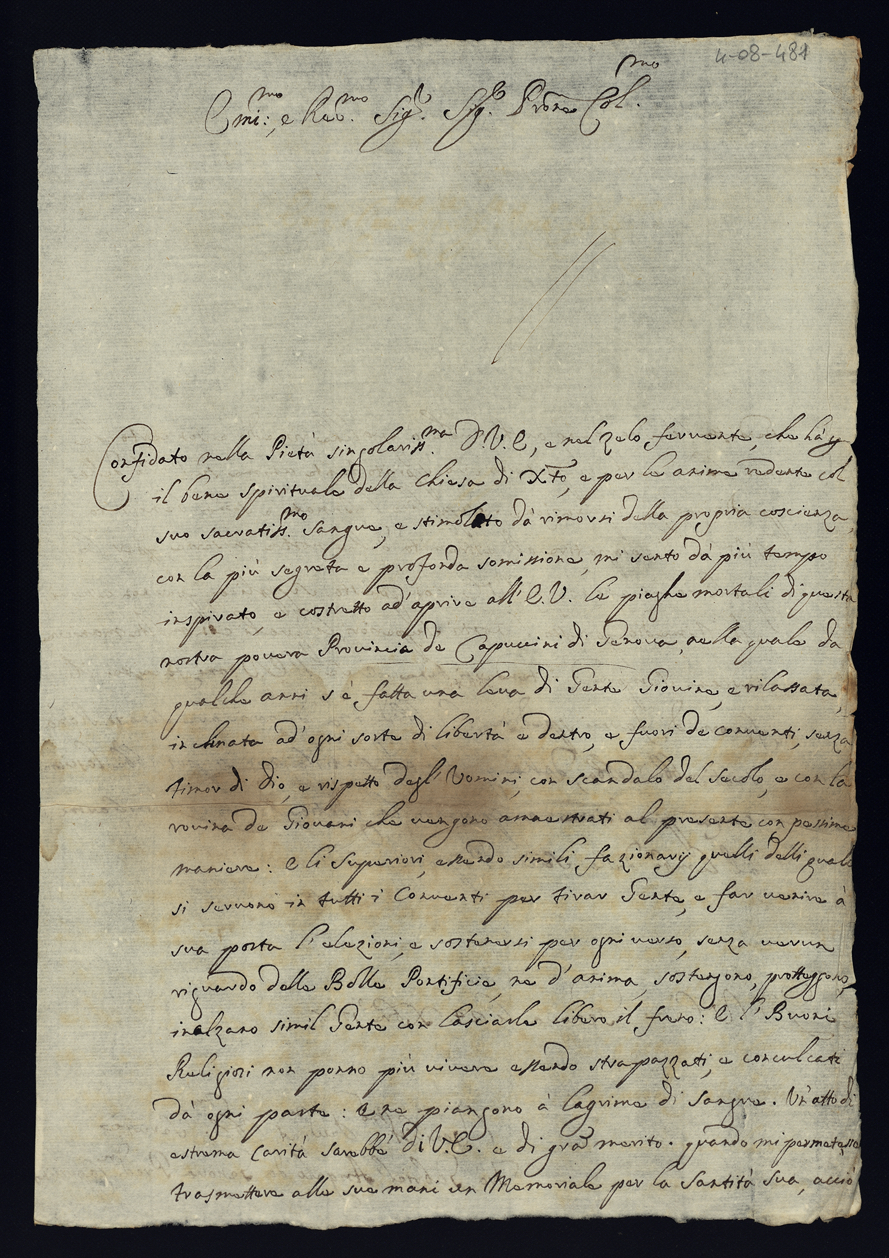 4-08-481
Emi:mo, e Reumo. Sigr. Sigr. Prone Col.mo
Confidato nella Pietà singolariss.ma D.V.E., e nel zelo feruente, che hà p
il bene spirituale della Chiesa di Xto, e per le anime redente col
suo sacratiss.mo Sangue, e stimolato dà rimorsi della propria coscienza,
con la più segreta e profonda somissione, mi sento dà più tempo
inspirato, e costretto ad'aprire all'E.V. le piaghe mortali di questa
nostra pouera Prouincia de Capuccini di Genoua, nella quale da
qualche anni s'è fatta una leua di Gente Giouine, e rilassata,
inclinata ad'ogni sorte di libertà e dentro, e fuori de conuenti, senza
timor di Dio, e rispetto degl'Uomini, con scandalo del secolo, e con la
rouina de Giouani che uengono amaestrati al presente con pessime
maniere: E li Superiori, essendo simili fazionarij quelli delli quali
si seruono in tutti i Conuenti per tirar Gente, e far uenire à
sua posta l'elezioni, e sostenersi per ogni uerso, senza uerun
riguardo delle Bolle Pontificie, ne d'anima, sostengono, proteggono,
inalzano simil Gente con lasciarle libero il freno: E l'Buoni
Religiosi non ponno più uiuere essendo strapazzati, e conculcati
dà ogni parte: e ne piangono à lagrime di sangue. Un'atto di
estrema carità sarebbe di V.E. e di gran merito. quando mi permetesse
trasmettere alle sue mani un Memoriale per la Santità Sua, acciò